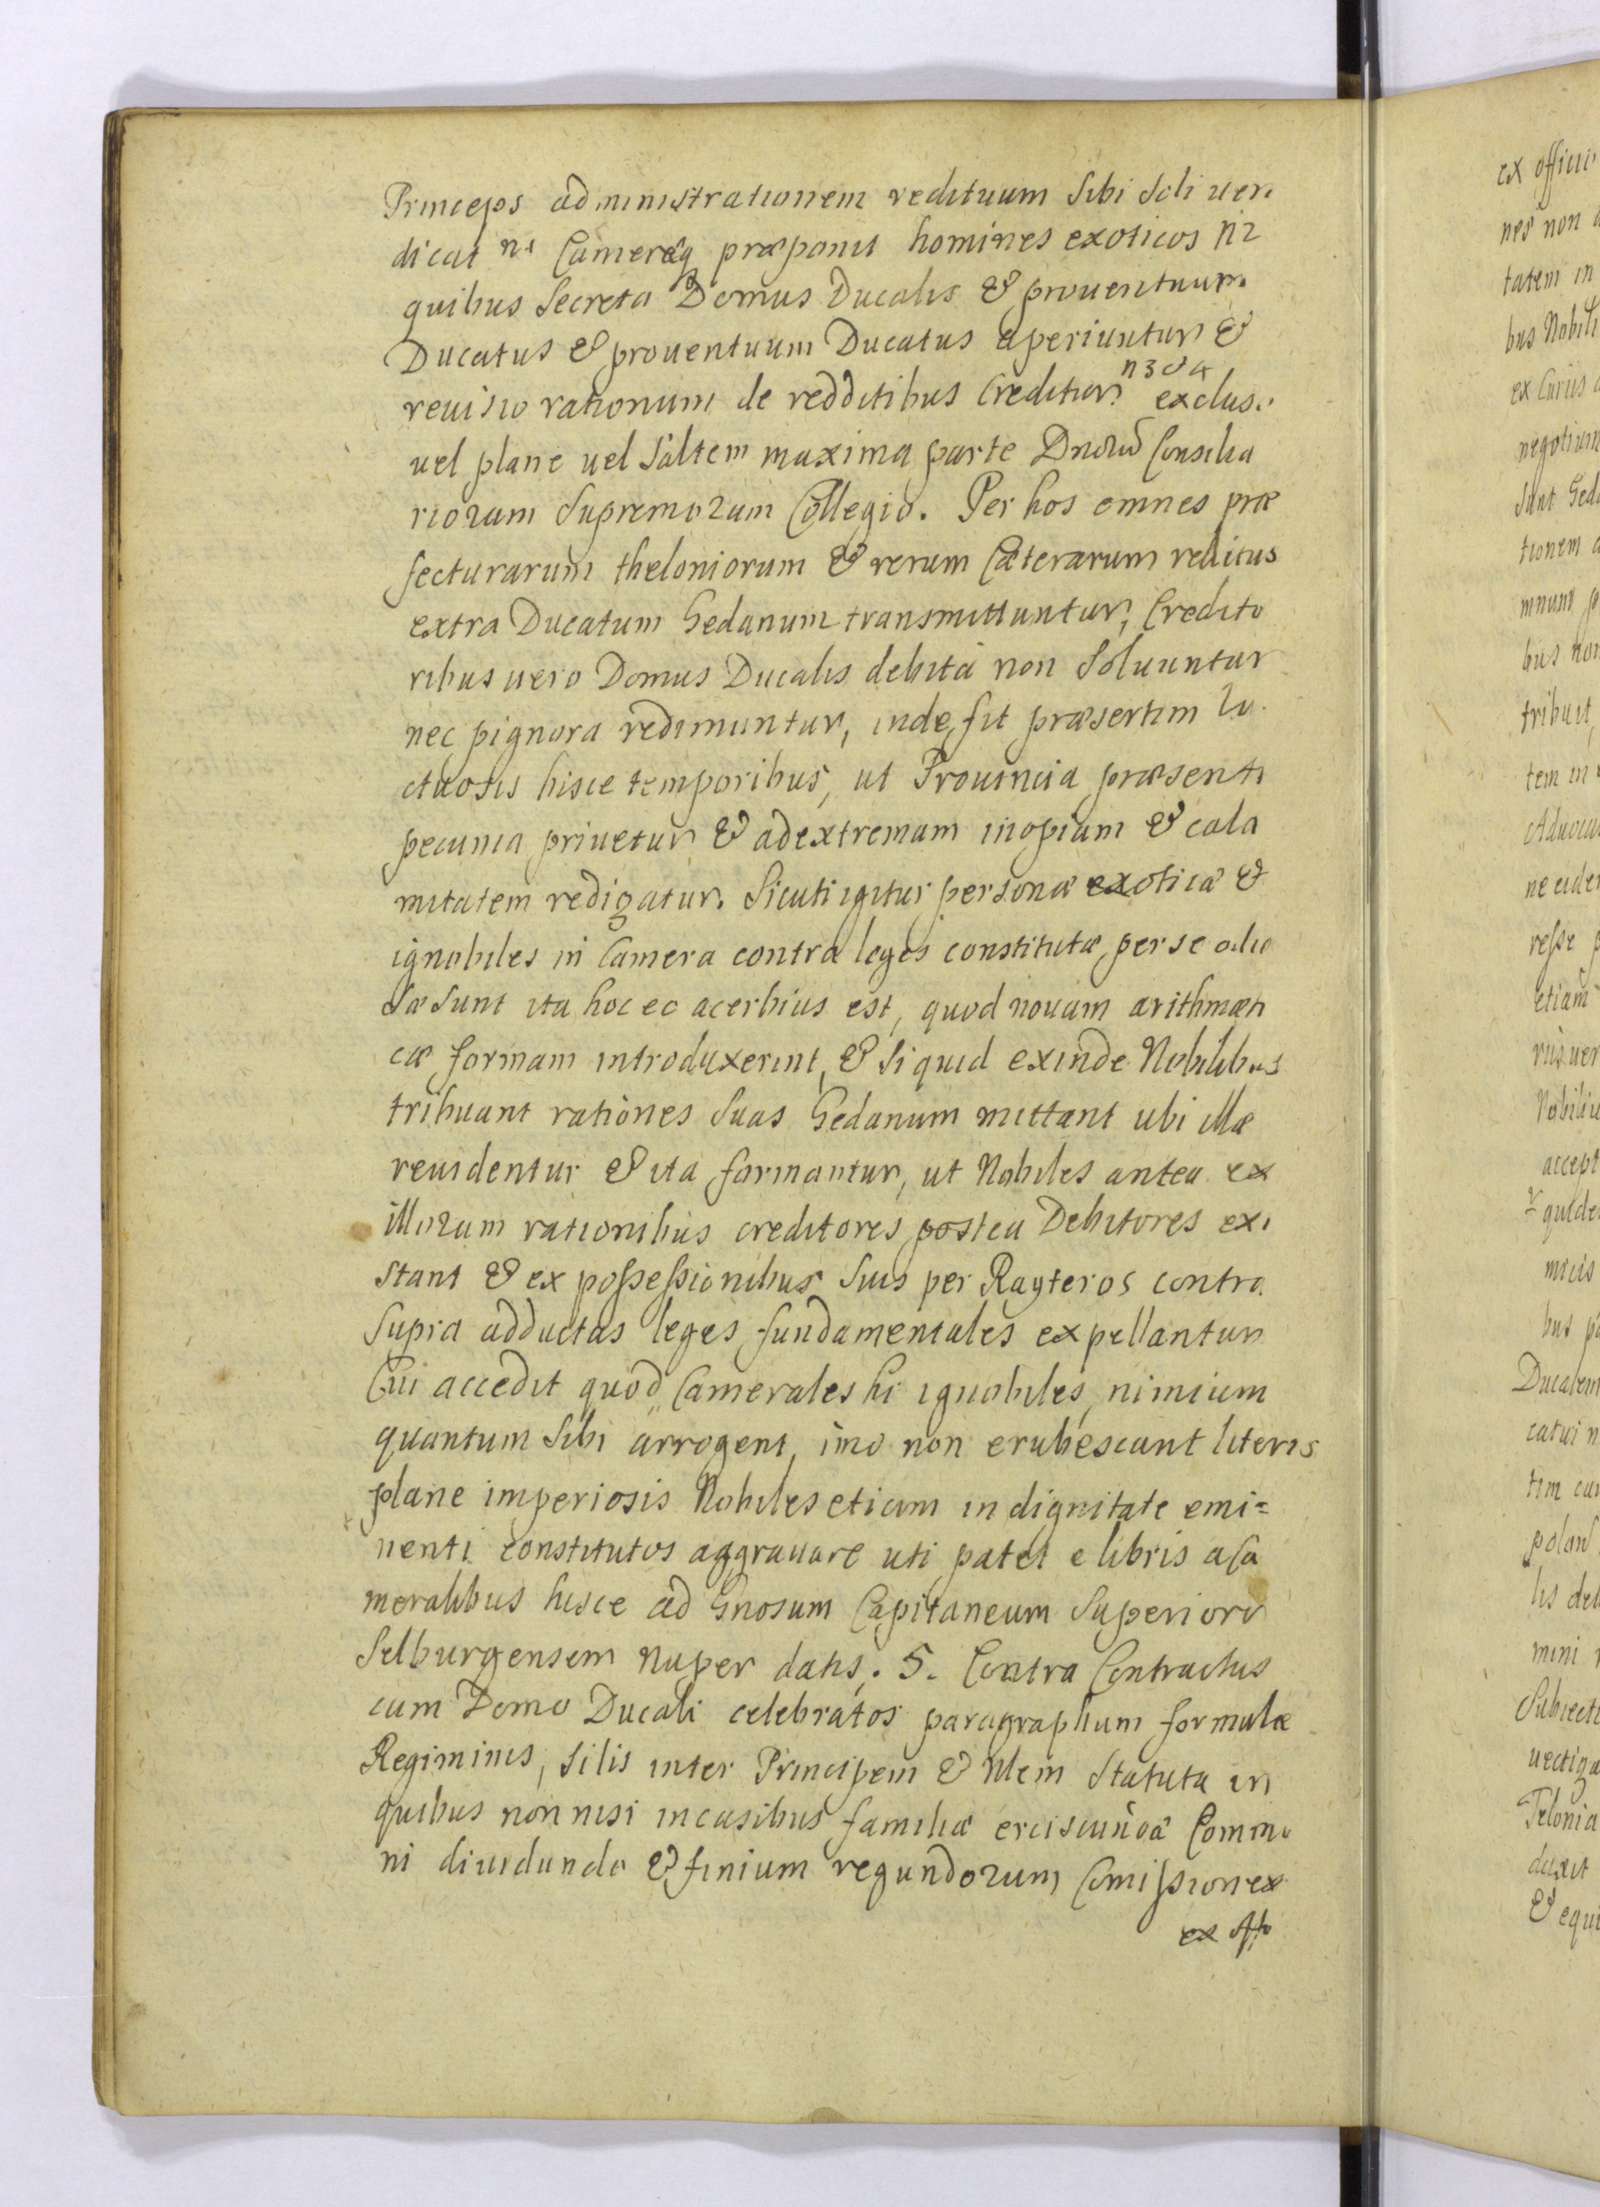 Princeps administrationem redituum sibi soli uen
dicat n1 Cameræq præponit homines exoticos n2
quibus Secreta Domus Ducalis & prouentuum
Ducatus & prouentuum Ducatus aperiuntur &
n3 & 4
reuisio rationum de redditibus Creditur exclus.
uel plane uel saltem maxima parte Dnorũ Consilia
riorum Supremorum Collegio. Per hos omnes præ
fecturarum theloniorum & rerum Cæterarum reditus
extra Ducatum Gedanum transmittuntur, Credito
ribus uero Domus Ducalis debita non soluuntur
nec pignora redimuntur, inde fit præsertim lu
ctuosis hisce temporibus, ut Prouincia præsenti
pecunia priuetur & ad extremam inopiam & cala
mitatem redigatur. Sicuti igitur personæ exoticæ &
ignobiles in Camera contra leges constitutæ, per se odio
sæ sunt ita hoc eo acerbius est, quod nouam arithmæti
cæ formam introduxerint, & si quid exinde Nobilibus
tribuant rationes suas Gedanum mittant ubi illæ
reuidentur & ita formantur, ut Nobiles antea ex
illorum rationibus creditores postea Debitores exi
stant & ex possessionibus suis per Rayteros contra
supra adductas leges fundamentales expellantur
Cui accedit quod Camerales hi ignobiles, nimium
quantum sibi arrogent, imo non erubescant literis
plane imperiosis Nobiles etiam in dignitate emi=
nenti constitutos aggrauare uti patet e libris a Ca
meralibus hisce ad Gnosum Capitaneum Superiore
Selburgensem nuper datis. 5. Contra Contractus
cum Domo Ducali celebratos paragraphum formulæ
Regiminis, si lis inter Principem & Nlem Statuta in
quibus non nisi in casibus familiæ erciscundæ Commu
ni diuidundo & finium regundorum Comissiones
ex Affo
ex officio
nes non
tatem in
bus Nobili
ex Curiis
negotium
sunt Geda
tionem
mnium
bus
tribuit
tem in
Aduoca
ne eide
resse p
etiam
riis uer
Nobiliu
accept
quide
micis
bus pa
Ducalem
catui n
tim cu
polon
lis de
mini
Subiect
uectiga
Telonia
duxit
& equi